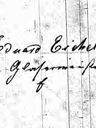 Eduard Eichel
Glasermeist
f